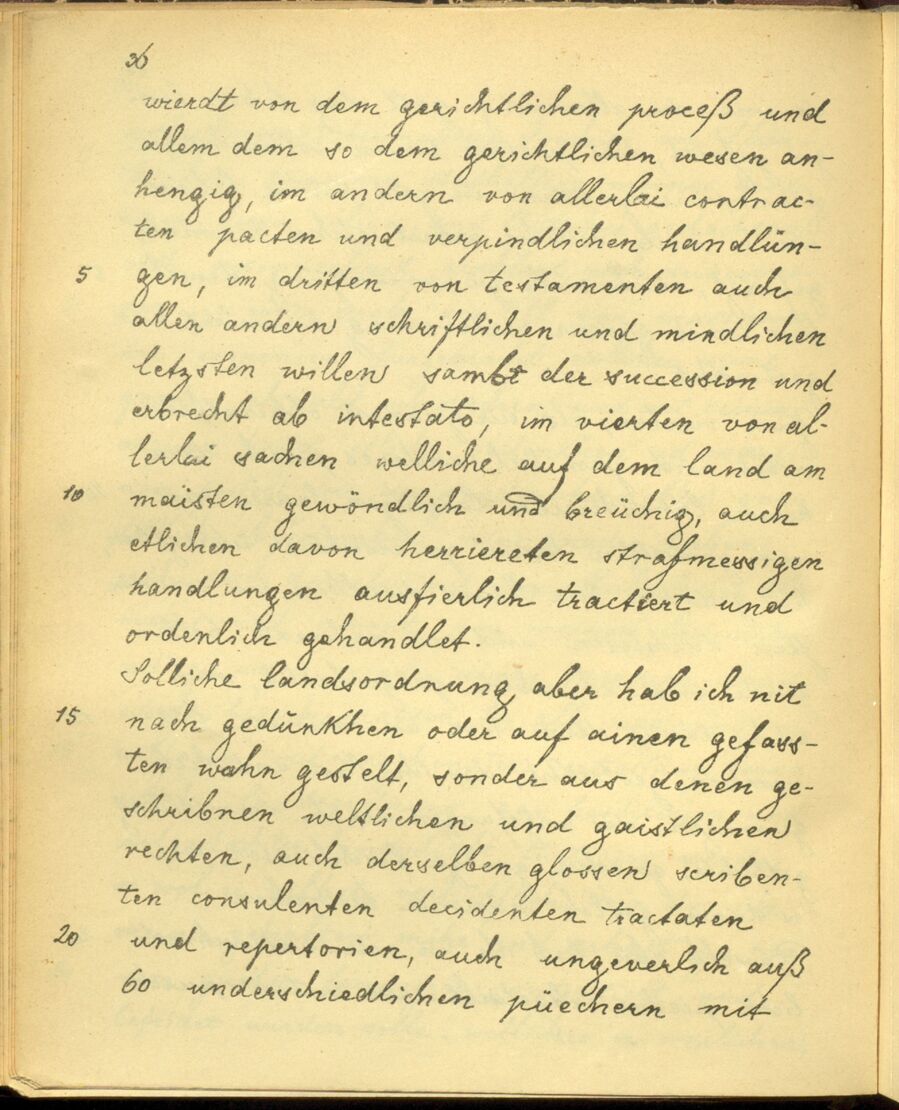 36
wierdt von dem gerichtlichen proceß und
allem dem so dem gerichtlichen wesen an-
hengig, im andern von allerlai contrac-
ten pacten und verpindlichen handlün-
5 gen, im dritten von testamenten auch
allen andern schriftlichen und mindlichen
letzsten willen sambt der succession und
erbrecht ab intestato, im vierten von al-
lerlai sachen welliche auf dem land am
10 maisten gewöndlich und breüchig, auch
etlichen davon herriereten strafmessigen
handlungen ausfierlich tractiert und
ordenlich gehandlet.
Solliche landsordnung aber hab ich nit
15 nach gedünkhen oder auf ainen gefass-
ten wahn gestelt, sonder aus denen ge-
schribnen weltlichen und gaistlichen
rechten, auch derselben glossen scriben-
ten consulenten decidenten tractaten
20 und repertorien, auch ungeverlich auß
60 underschiedlichen püechern mit